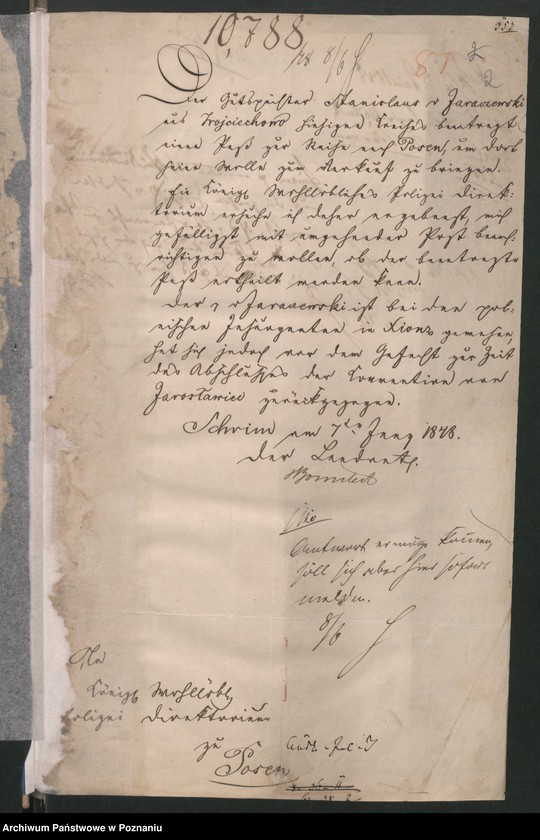 10,788
353
pr 8/6 J
81
2
2
Der Gutspächter Stanislaus v Zaraczewski
aus Woyciechowo hiesigen Kreises beantragt
einen Paß zur Reise nach Posen, um dort
seine Wolle zum Verkauf zu bringen.
Ein Königl Wohllöbliches Polizei Direk-
torium ersuche ich daher ergebenst, mich
gefälligst mit umgehender Post benach-
richtigen zu wollen, ob der beantragte
Paß ertheilt werden kann.
Der v Zaraczewski ist bei den pol-
nischen Insurgenten in Xions gewesen,
hat sich jedoch vor dem Gefecht zur Zeit
des Abschlusses der Convention von
Jaroslawiec zurückgezogen.
Schrim am 7ten Juny 1848.
Der Landrath.
Cito
Antwort er möge kommen,
soll sich aber hier sofort
melden.
8/6 J
An
Königl Wohllöbl
Polizei Direktorium
zu
Posen
Archiwum Państwowe w Poznaniu